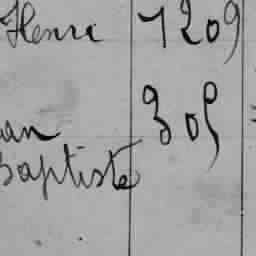 Henri 1209
an 309
Baptiste